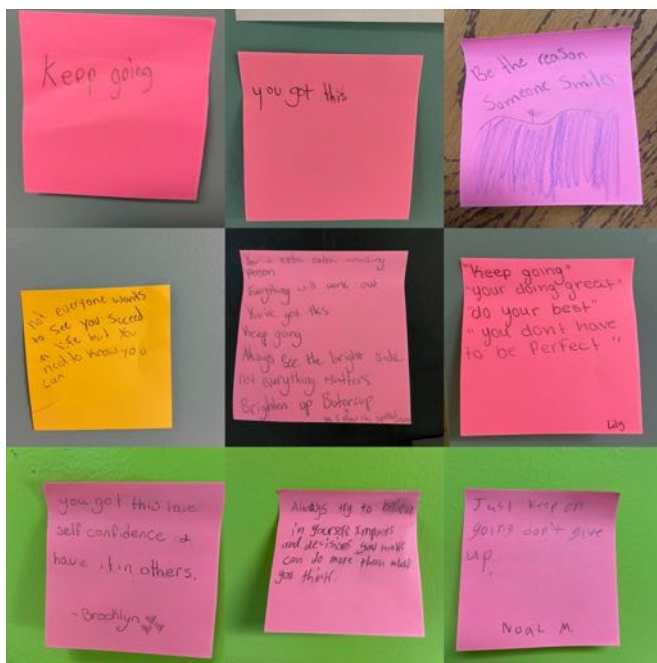 Keep going
you got this
Be the reason
Someone Smiles
not everyone wants
to see you succeed
in life but you
need to know you
can
You a extra extra amazing
person
Everything will work out
You've got this
Keep going
Always see the bright side
not everything matters
Brighten up Butercup
"Keep going"
"your doing great"
"do your best"
"you don't have
to be Perfect"
Lily
you got this have
self confidence &
have it in others.
- Brooklyn
Always try to believe
in yourself
and decisions you make
can do more than what
you think.
Just keep on
going don't give
up.
Noah M.